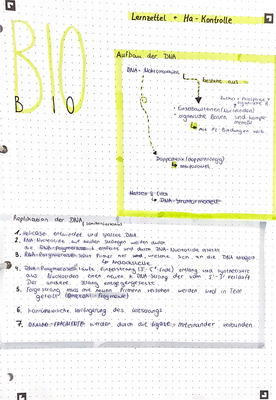 BIO
BIO
Lernzettel + Ha-Kontrolle
Aufbau der DNA
DNA = Makromolekül
besteht aus
Zucker + Phosphate +
organische B.
• Einzelbausteinen (Nukleotiden)
• organische Basen sind komple-
mentär
↳ mit H-Bindungen verb.
Doppelhelix (Doppelstrang)
↳ antiparallel
Watson & Crick
↳ DNA-Strukturmodell
Replikation der DNA
1. Helicase entwindet und spaltet DNA
2. RNA-Nucleotide auf beiden Strängen werden durch
die DNA-Polymerase entfernt und durch DNA-Nucleotide ersetzt
3. RNA-Polymerase setzt Primer her und welche sich an die DNA anlagern
↳ Andockstelle
4. DNA-Polymerase läuft Einzelstrang (3'-5'-Ende) entlang und synthetisiert
aus Nucleotiden einen neuen DNA-Strang der vom 5'-3' verläuft
Der anderer Strang entgegengesetzt
5. Folgestrang muss mit neuen Primern versehen werden und in Teile
geteilt (Okazaki-Fragmente)
6. Kontinuierliche Verlängerung des Leitstrangs
7. Okazaki-FRAGMENTE werden durch die Ligase miteinander verbunden